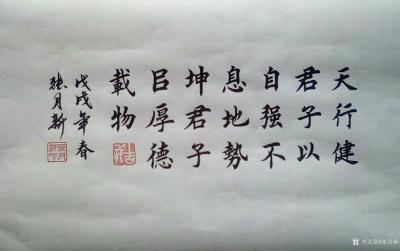 天行健
君子以
自强不
息地勢
坤君子
㠯厚德
載物
戊戌年春
张月新